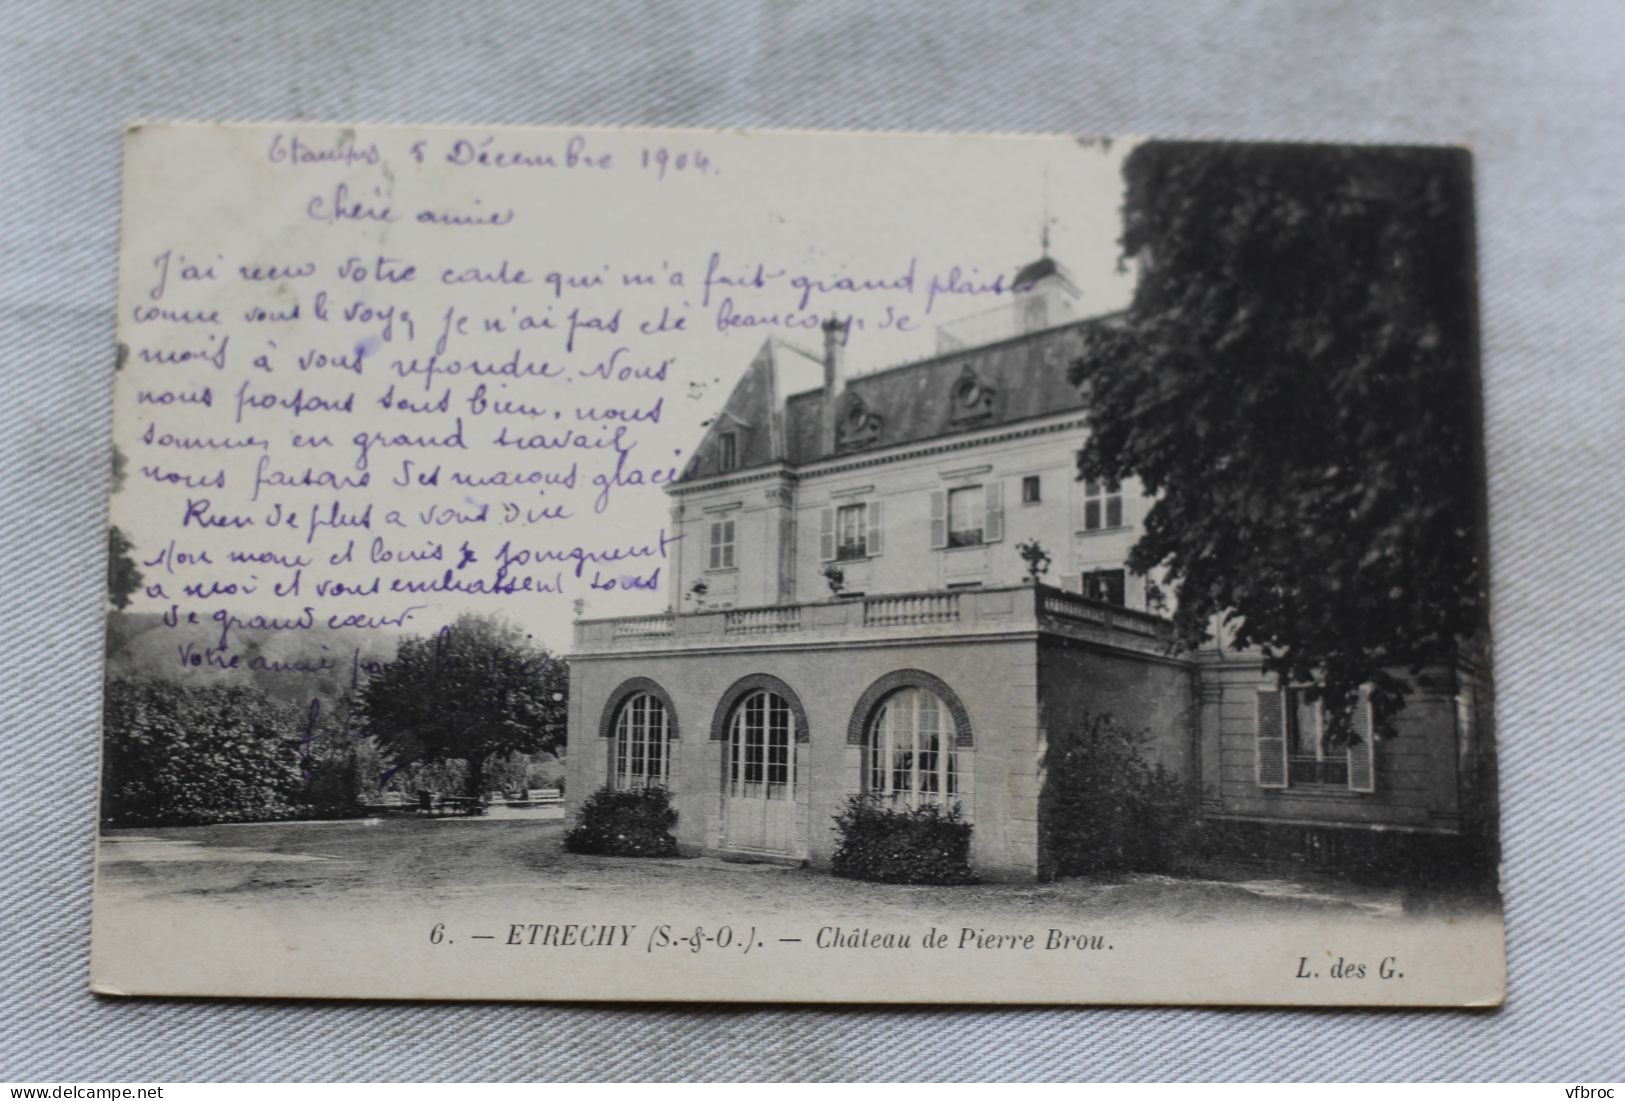 Etampes 5 Décembre 1904.
Chère amie
J'ai recu votre carte qui m'a fait grand plaisir
comme vous le voyez je n'ai pas été beaucoup de
mois à vous repondre. Nous
nous portons tous bien, nous
sommes en grand travail
nous faisons des marons glacés
Rien de plus a vous dire
Mon mari et Louis se joingnent
a moi et vous embrassent tous
de grand cœur
Votre amie pour la vie
6. — ETRECHY (S.-&-O.). — Château de Pierre Brou.
L. des G.
delcampe.net
vfbroc